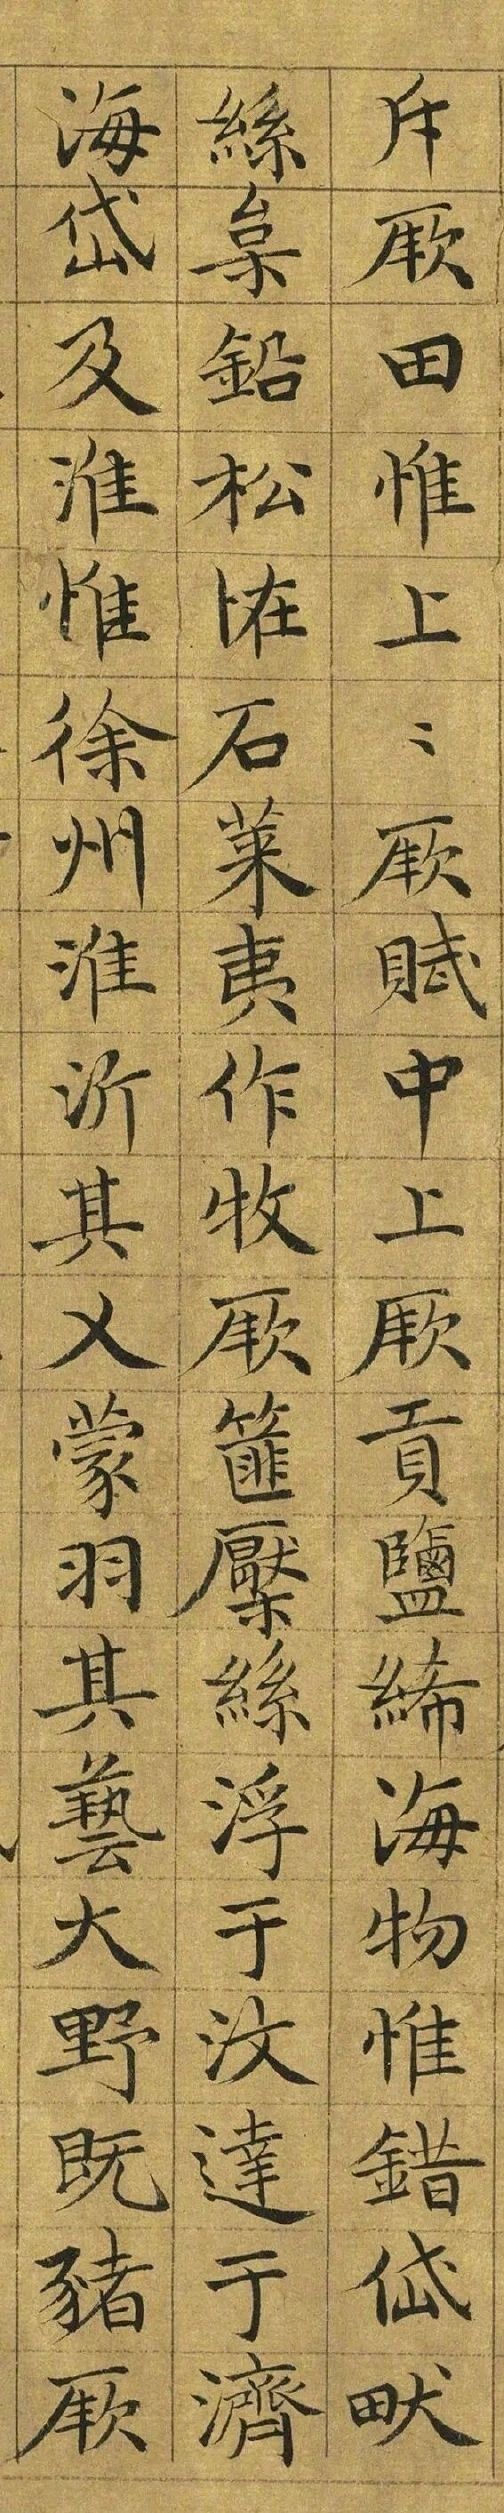 斥厥田惟上〻厥賦中上厥貢鹽絺海物惟錯岱畎
絲枲鉛松恠石萊夷作牧厥篚檿絲浮于汶達于濟
海岱及淮惟徐州淮沂其乂蒙羽其藝大野既豬厥